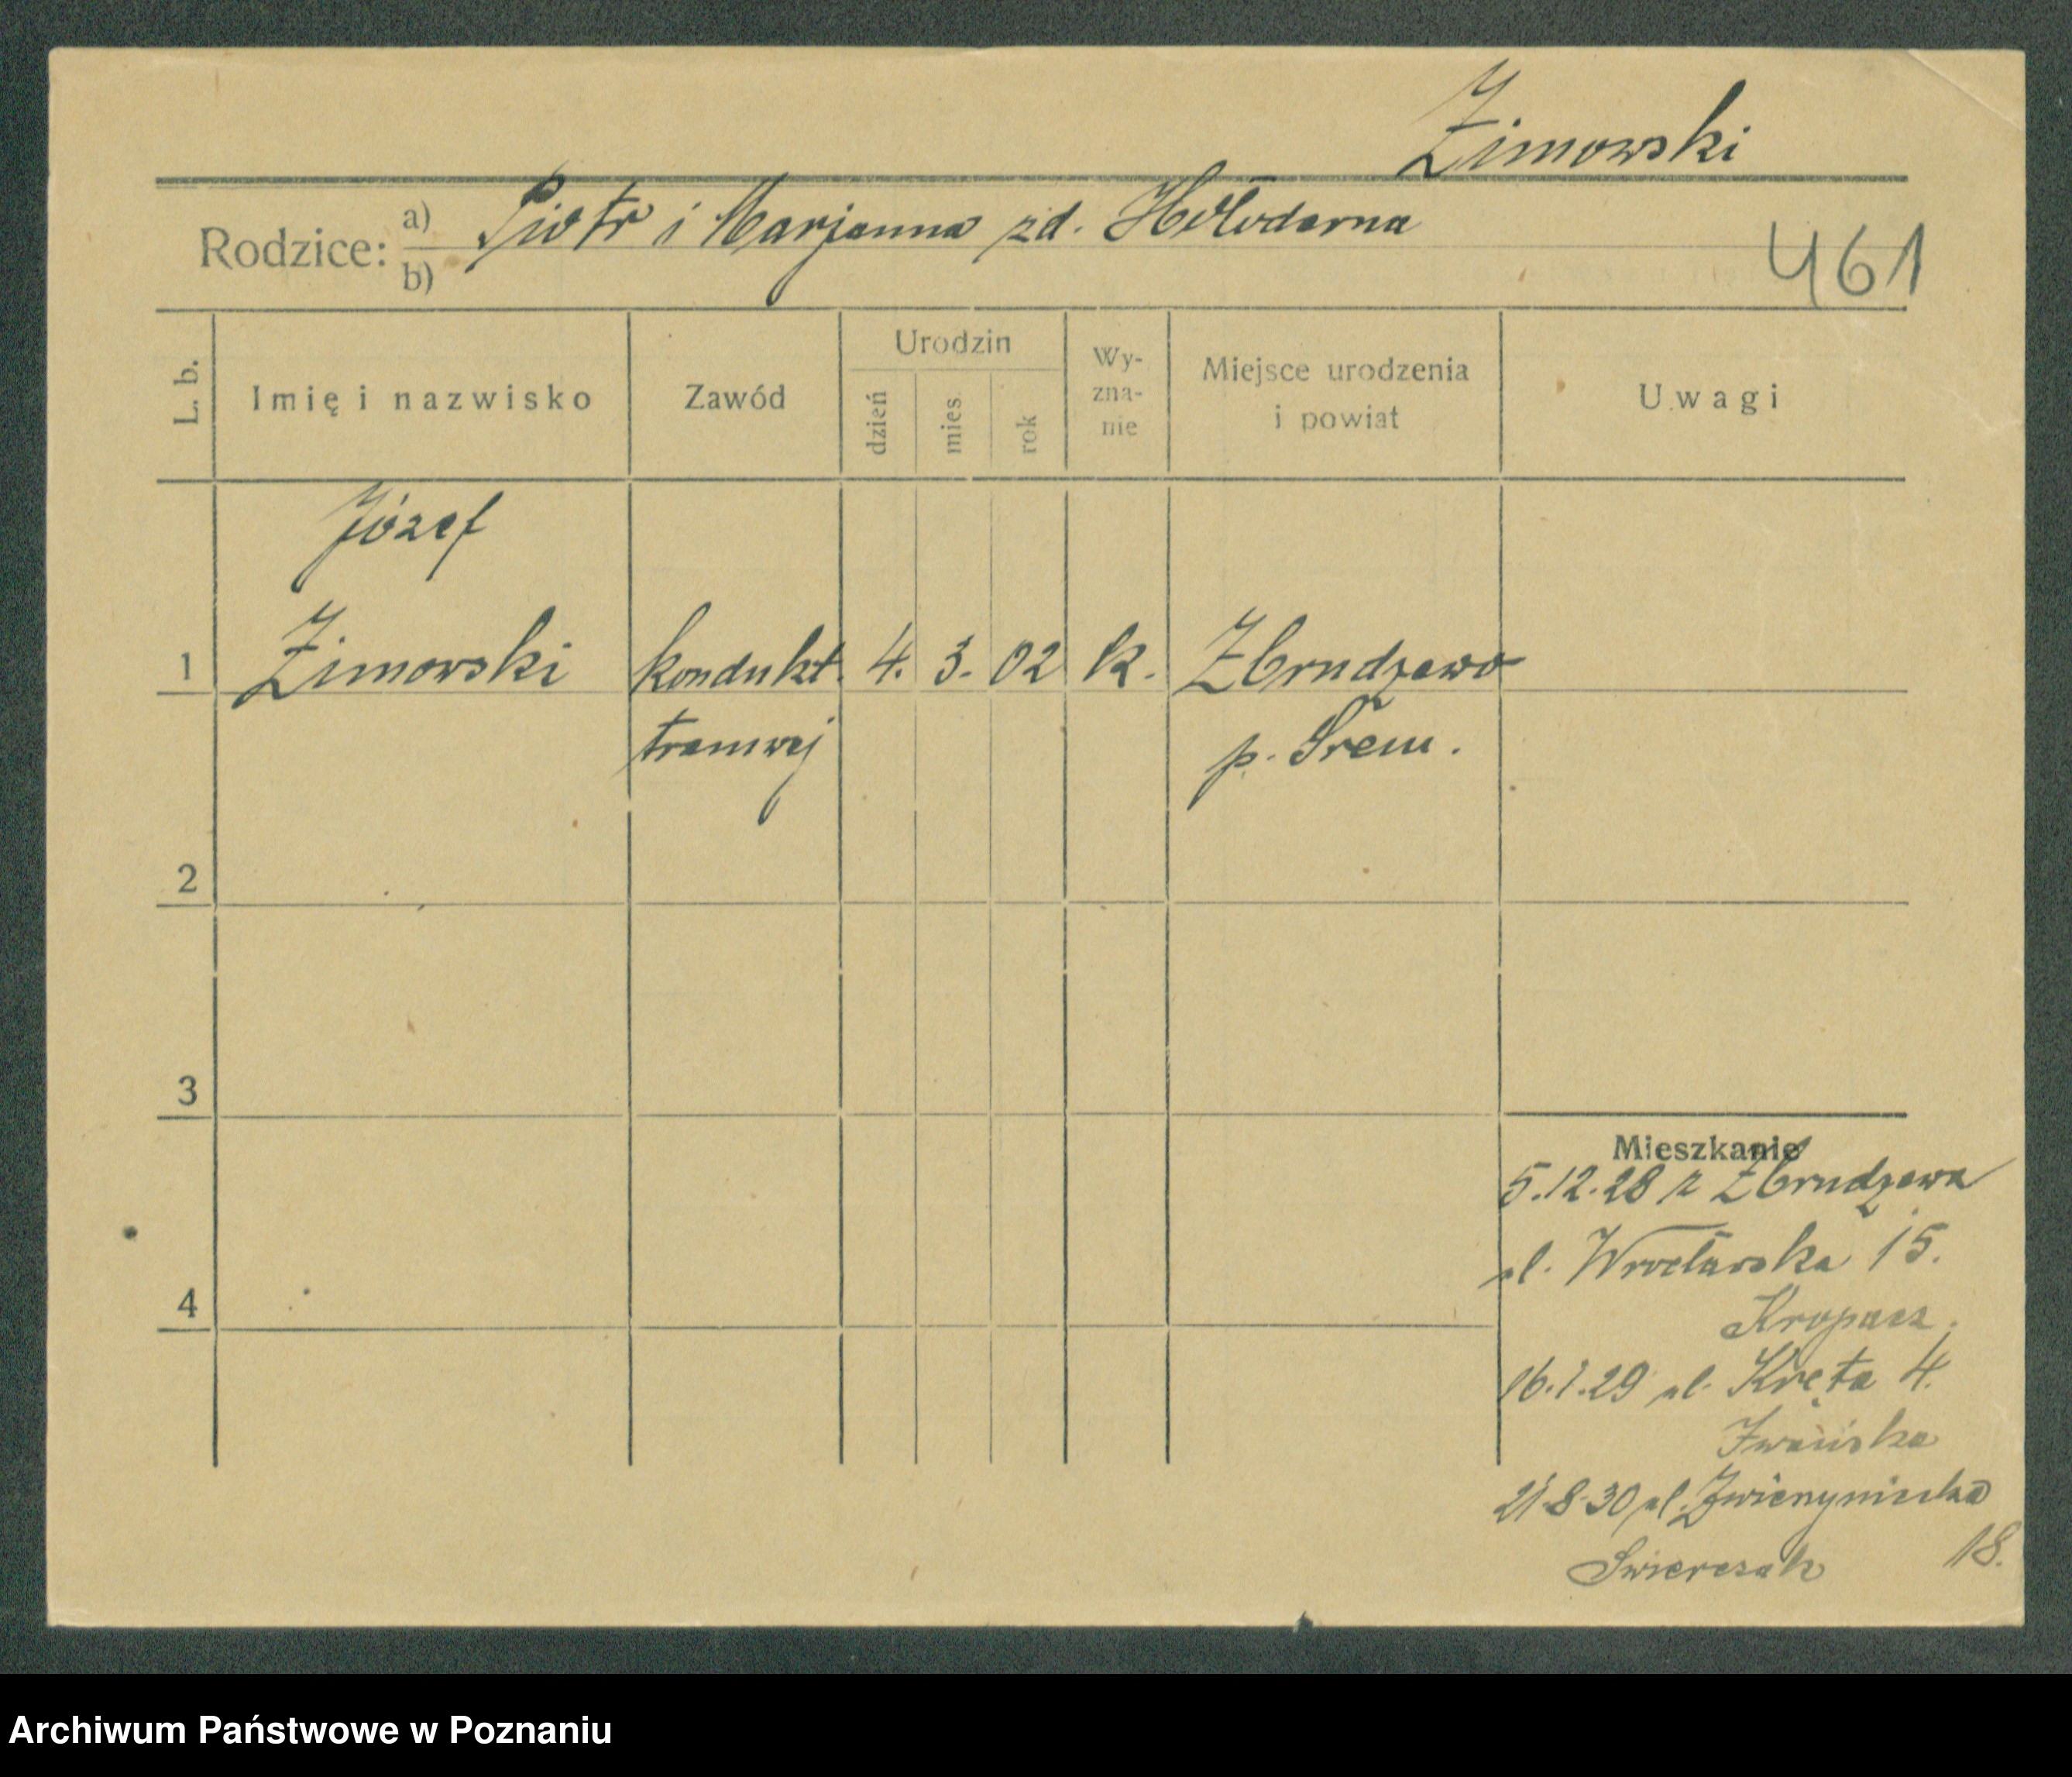 Zimowski
Rodzice: a) Piotr i Marjanna zd. Hołodarna
b)
461
L. b.
Imię i nazwisko
Zawód
Urodzin
dzień
mies
rok
Wy-
zna-
nie
Miejsce urodzenia
i powiat
Uwagi
Józef
1 Zimowski kondukt. 4. 3. 02 k. Zbrudzewo
tramwej p. Śrem.
2
3
Mieszkanie
5.12.28 z Zbrudzewa
ul. Wrocławska 15.
4
Kropacz.
16.1.29 ul. Kręta 4.
Iwańska
21.8.30 ul. Zwierzyniecka
18.
Swierczak
Archiwum Państwowe w Poznaniu